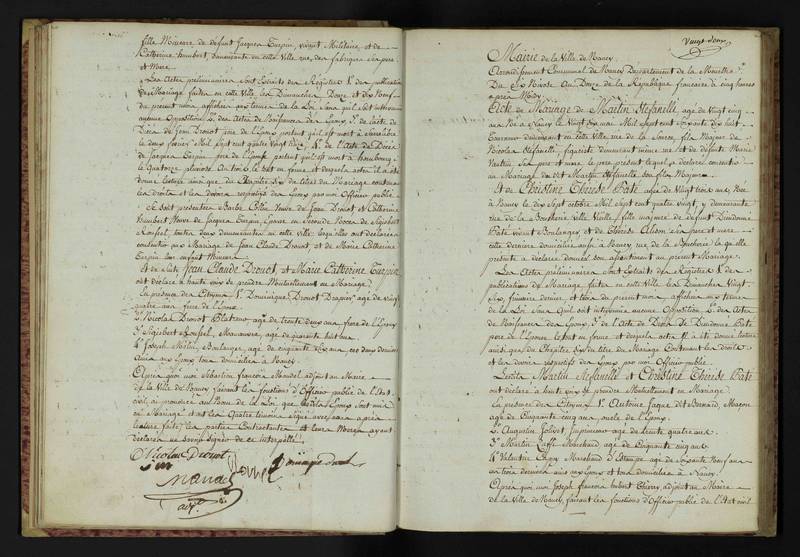 fille Mineure de défunt Jacques Turpin, vivant Militaire, et de
Catherine humbert demeurante en cette Ville rue des fabriques ses pere
et Mere
Les Actes préliminaires sont Extraits des Registres de publications
de Mariage faites en cette Ville les Dimanches Douze et Dix Neuf
du present mois, affichées aux termes de la Loi sans qu'il soit intervenu
aucune Opposition de l'acte de
Décès de Jean Drouot pere de l'Epoux portant qu'il est mort à
le deux fevrier Mil Sept cent quatre Vingt de l'Acte de Décès
de Jacques Turpin pere de l'Epouse portant qu'il est mort à
le Quatorze pluviose An trois le tout en forme et desquels actes il a été
donné lecture ainsi que du Chapitre Six du titre du Mariage contenant
les droits et les devoirs respectifs des Epoux par moi Officier public
Se sont présentées Barbe Colin Veuve de Jean Drouot et Catherine
humbert Veuve de Jacques Turpin, Epouse en Seconde Noces de Sigisbert
toutes deux demeurantes en cette ville lesquelles ont déclaré
consentir au Mariage de Jean Claude Drouot, et de Marie Catherine
Turpin leurs enfans Mineurs
Et de Suite Jean Claude Drouot, et Marie Catherine Turpin
ont déclaré à haute voix se prendre Mutuellement en Mariage
En presence des Citoyens 1° Dominique Drouot Drapier agé de Vingt
quatre ans frere de l'Epoux
2° Nicolas Drouot Platrier agé de trente deux ans frere de l'Epoux
3° Sigisbert Manœuvre, agé de quarante huit ans
4° Joseph Boulanger, agé de cinquante Six ans, ces deux derniers
Amis aux Epoux tous domiciliés à Nancy
Après quoi moi Sébastien françois Mandel adjoint au Maire
de la Ville de Nancy faisant les fonctions d'Officier public de l'Etat
civil ai prononcé au Nom de la Loi que lesdits Epoux sont unis
en Mariage et ont les Quatre témoins signé avec moi après
lecture faite les parties Contractantes et leurs Meres ayant
déclaré ne savoir signer de ce interpellés
Nicolas Drouot
Dominique Drouot
Mandel
adjt
Vingt deux
Mairie de la Ville de Nancy
Arrondissement Communal de Nancy Département de la Meurthe
Du Six Nivose An Douze de la République française à cinq heures
après Midy
Acte de Mariage de Martin Stefanelli agé de Vingt cinq
ans Né à Nancy le Vingt Six mai Mil Sept cent Soixante dix huit
Tourneur demeurant en cette Ville rue de la Source, fils Majeur de
Nicolas Stefanelli, figuriste demeurant même rue et de défunte Marie
ses pere et mere le pere present lequel a déclaré consentir
au Mariage dudit Martin Stefanelli son fils Majeur
Et de Christine Thérèse Pâté agée de Vingt trois ans Née
à Nancy le dix Sept octobre Mil Sept cent quatre vingt, y demeurante
rue de la Boucherie Ville Vieille, fille majeure de défunt Dieudonné
Pâté vivant Boulanger et de Thérèse Alison ses pere et mere
cette derniere domiciliée aussi à Nancy rue de la Boucherie laquelle
présente a déclaré donner son assentiment au present Mariage
Les Actes preliminaires sont Extraits des Registres de
publications de Mariage faites en cette Ville les Dimanches Vingt
Six, frimaire dernier et trois du present mois, affichées aux termes
de la Loi sans qu'il soit intervenu aucune Opposition des Actes
de Naissances des Epoux, de l'acte de Décès de Dieudonné Pâté
pere de l'Epouse le tout en forme et desquels actes il a été donné lecture
ainsi que du Chapitre Six du titre du Mariage Contenant les droits
et les devoirs respectifs des Epoux par moi Officier public
Lesdits Martin Stefanelli et Christine Thérèse Pâté
ont déclaré à haute voix se prendre Mutuellement en Mariage
En présence des Citoyens 1° Antoine Jaque dit Bernard, Maçon
agé de Cinquante cinq ans, oncle de l'Epoux
2° Augustin Jolivet Imprimeur agé de trente quatre ans
3° Martin Marchand agé de Cinquante cinq ans
4° Valentin Marchand d'Estampes agé de Soixante Neuf ans
ces trois derniers amis aux Epoux et tous domiciliés à Nancy
Après quoi moi Joseph françois hubert Thirion, adjoint au Maire
de la Ville de Nancy, faisant les fonctions d'Officier public de l'Etat civil